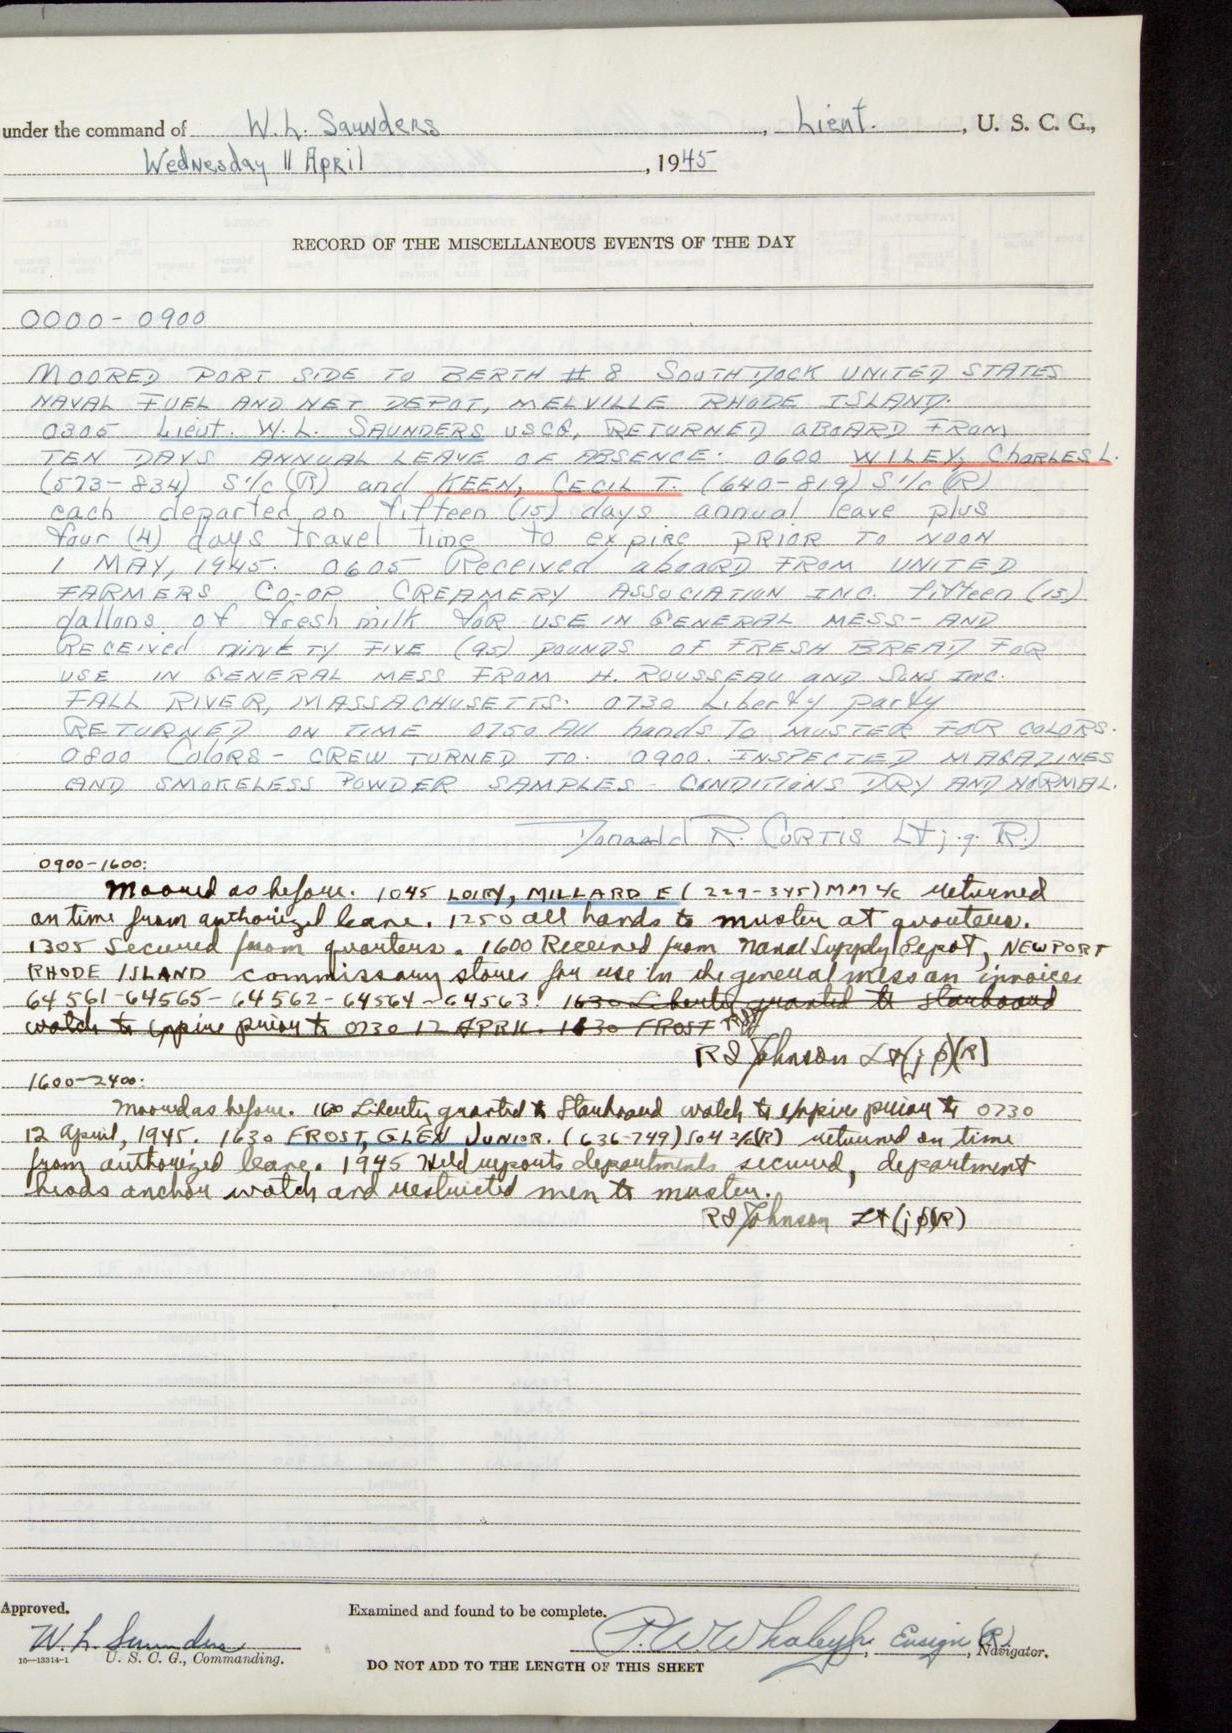 under the command of W. L. Saunders, Lieut., U. S. C. G.,
Wednesday 11 April, 1945
RECORD OF THE MISCELLANEOUS EVENTS OF THE DAY
0000-0900
MOORED PORT SIDE TO BERTH # 8 SOUTH DOCK UNITED STATES
NAVAL FUEL AND NET DEPOT, MELVILLE RHODE ISLAND.
0305 Lieut. W. L. SAUNDERS USCG, RETURNED aBOARD FROM
TEN DAYS ANNUAL LEAVE OF ABSENCE. 0600 WILEY, CHARLES L.
(573-834) S1/c (R) and KEEN, CECIL T. (640-819) S1/c (R)
each departed on fifteen (15) days annual leave plus
four (4) days travel time to expire PRIOR TO NOON
1 MAY, 1945. 0605 Received aboard FROM UNITED
FARMERS CO-OP CREAMERY ASSOCIATION INC. fifteen (15)
gallons of fresh milk FOR USE IN GENERAL MESS- AND
RECEIVED NINETY FIVE (95) POUNDS OF FRESH BREAD FOR
USE IN GENERAL MESS FROM H. ROUSSEAU AND SONS INC.
FALL RIVER, MASSACHUSETTS. 0730 Liberty party
RETURNED ON TIME 0750 All hands To MUSTER FOR COLORS.
0800 Colors - CREW TURNED TO. 0900. INSPECTED MAGAZINES
AND SMOKELESS POWDER SAMPLES - CONDITIONS DRY AND NORMAL.
Donald R. CURTIS Lt j.g. R.)
0900-1600:
Moored as before. 1045 LORY, MILLARD E (229-345) MM 1/c returned
on time from authorized leave. 1250 all hands to muster at quarters.
1305 Secured from quarters. 1600 Received from Naval Supply Depot, NEWPORT
RHODE ISLAND commissary stores for use in the general mess on invoices
64561-64565-64562-64564-64563. 1630 Liberty granted to Starboard
watch to expire prior to 0730 12 APRIL. 1630 FROST
RJ Johnson Lt (jg)(R)
1600-2400:
Moored as before. 1600 Liberty granted to Starboard watch to expire prior to 0730
12 April, 1945. 1630 FROST, GLEN JUNIOR. (636-749) SoM 3/c(R) returned on time
from authorized leave. 1945 Held reports departments secured, department
heads anchor watch and restricted men to muster.
RJ Johnson Lt (jg)(R)
Approved.
W. L. Saunders
U. S. C. G., Commanding.
16-13314-1
Examined and found to be complete.
P. W. Whaley Jr., Ensign (R), Navigator.
DO NOT ADD TO THE LENGTH OF THIS SHEET